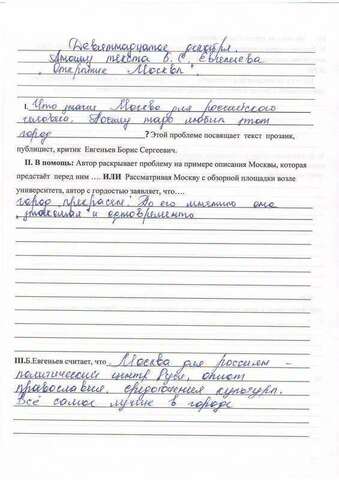 Девятнадцатое декабря.
Анализ текста Б. С. Евгеньева
"Открытие Москвы".
I. Что значит Москва для российского
человека. Почему надо любить этот
город ? Этой проблеме посвящает текст прозаик,
публицист, критик Евгеньев Борис Сергеевич.
II. В помощь: Автор раскрывает проблему на примере описания Москвы, которая
предстаёт перед ним …. ИЛИ Рассматривая Москву с обзорной площадки возле
университета, автор с гордостью заявляет, что….
город прекрасны. По его мнению она
"знакомая" и одновременно
III.Б.Евгеньев считает, что Москва для россиян -
политический центр Руси, оплот
православия, средоточения культуры.
Всё самое лучшее в городе